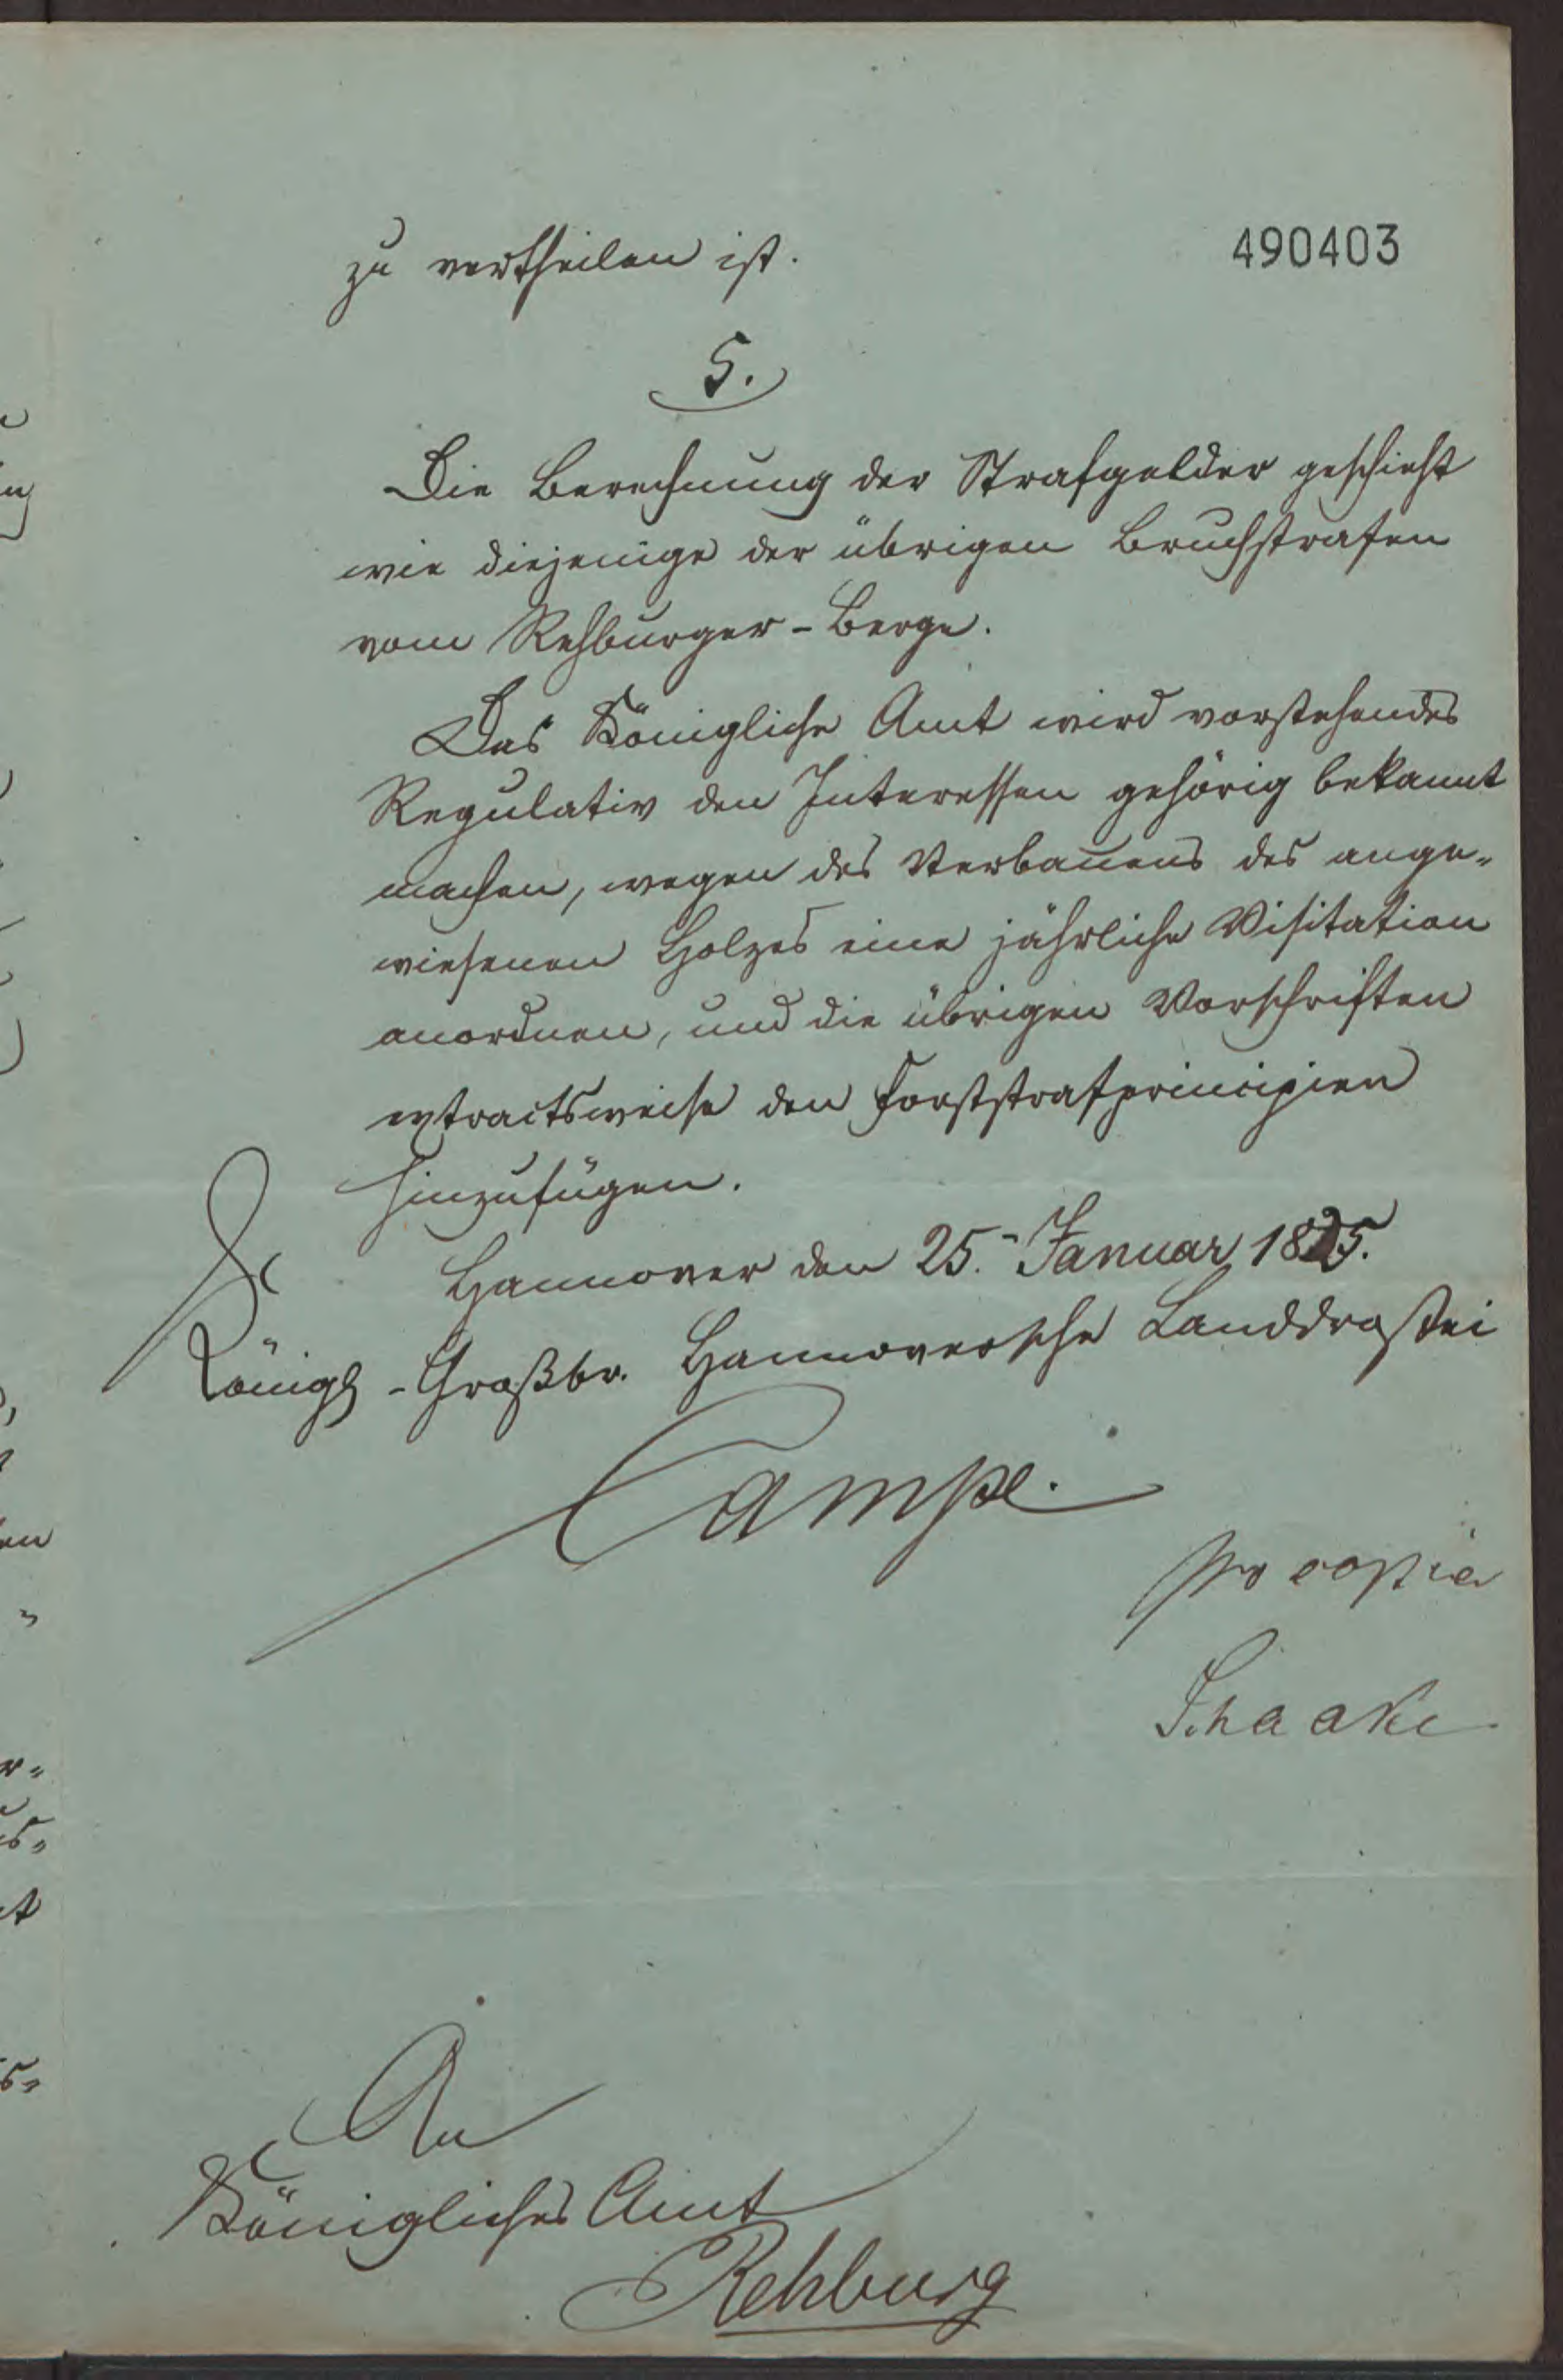 490403
zu vertheilen ist.
5.
Die Berechnung der Strafgelder geschieht
wie diejenige der übrigen Bruchstrafen
vom Rehburger-Berge.
Das Königliche Amt wird vorstehendes
Regulativ den Interessen gehörig bekannt
machen, wegen des Verbauens des ange„
wiesenen Holzes eine jährliche Visitation
anordnen, und die übrigen Vorschriften
extractsweise den Forststrafprincipien
hinzufügen.
Hannover den 25. Januar 1825.
Königl-Großbr. Hannoversche Landdrostei
Campe.
pro copia
Schaake
An
Königliches Amt
Rehburg